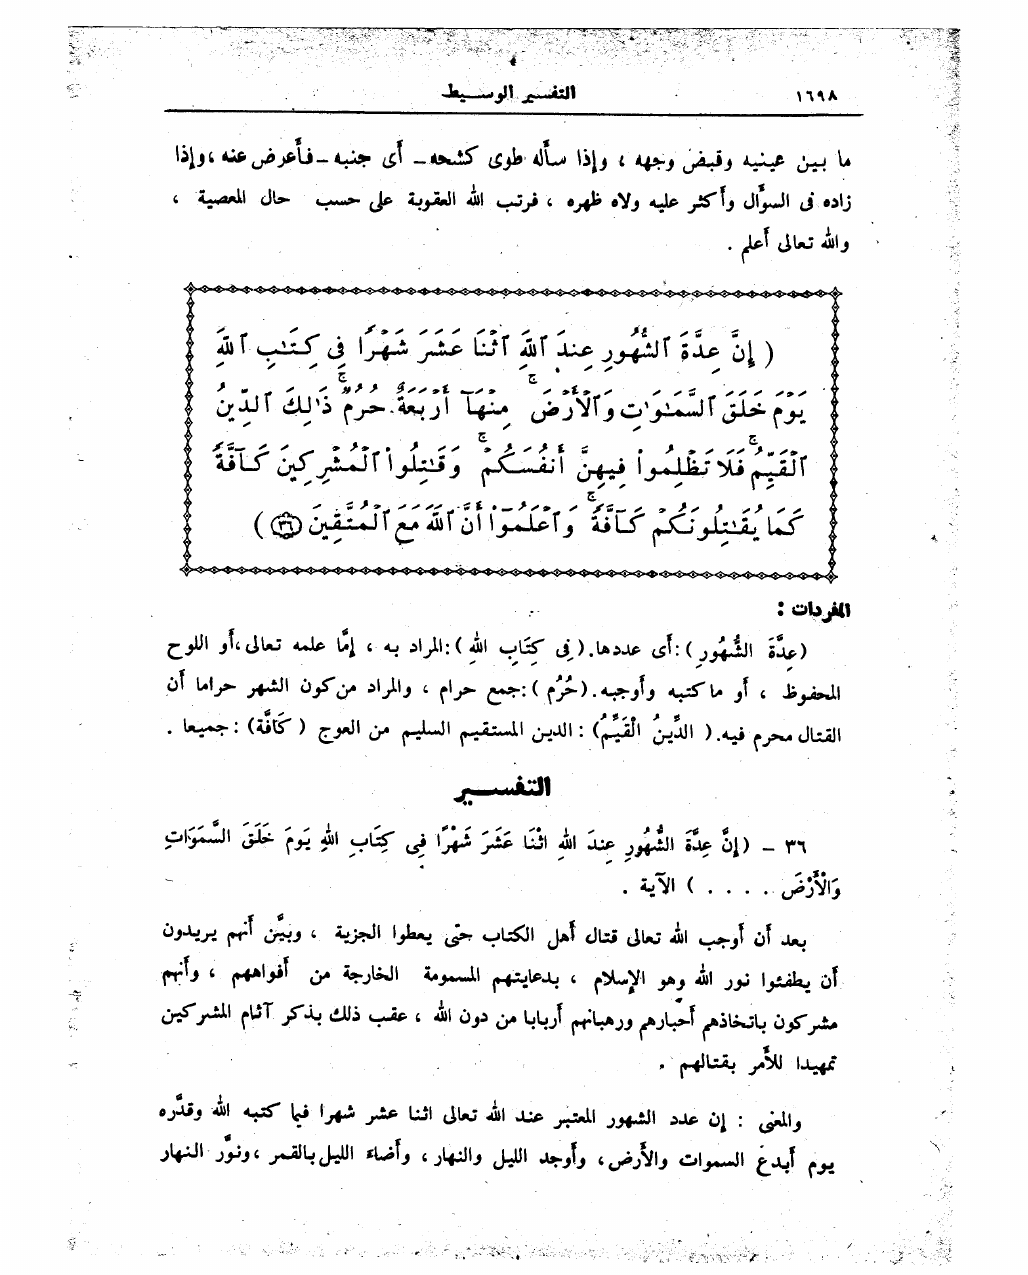 ١٦٩٨
التفسير الوسيط
ما بين عينيه وقبض وجهه ، وإذا سأله طوى كشحه ـ أى جنبه ـ فأعرض عنه ، وإذا
زاده فى السؤال وأكثر عليه ولاه ظهره ، فرتب الله العقوبة على حسب حال المعصية ،
والله تعالى أعلم .
( إِنَّ عِدَّةَ ٱلشُّهُورِ عِندَ ٱللَّهِ ٱثْنَا عَشَرَ شَهْرًا فِى كِتَٰبِ ٱللَّهِ
يَوْمَ خَلَقَ ٱلسَّمَٰوَٰتِ وَٱلْأَرْضَ مِنْهَآ أَرْبَعَةٌ حُرُمٌ ۚ ذَٰلِكَ ٱلدِّينُ
ٱلْقَيِّمُ ۚ فَلَا تَظْلِمُوا۟ فِيهِنَّ أَنفُسَكُمْ ۚ وَقَٰتِلُوا۟ ٱلْمُشْرِكِينَ كَآفَّةً
كَمَا يُقَٰتِلُونَكُمْ كَآفَّةً ۚ وَٱعْلَمُوٓا۟ أَنَّ ٱللَّهَ مَعَ ٱلْمُتَّقِينَ ٣٦ )
المفردات :
( عِدَّةَ الشُّهُورِ ) : أى عددها . ( فِى كِتَابِ اللهِ ) : المراد به ، إمَّا علمه تعالى ، أو اللوح
المحفوظ ، أو ما كتبه وأوجبه . ( حُرُم ) : جمع حرام ، والمراد من كون الشهر حراما أن
القتال محرم فيه . ( الدِّينُ الْقَيِّمُ ) : الدين المستقيم السليم من العوج ( كَافَّة ) : جميعا .
التفسير
٣٦ ـ ( إِنَّ عِدَّةَ الشُّهُورِ عِندَ اللهِ اثْنَا عَشَرَ شَهْرًا فِى كِتَابِ اللهِ يَوْمَ خَلَقَ السَّمَوَاتِ
وَالْأَرْضَ . . . . ) الآية .
بعد أن أوجب الله تعالى قتال أهل الكتاب حتى يعطوا الجزية ، وبيَّن أنهم يريدون
أن يطفئوا نور الله وهو الإسلام ، بدعايتهم المسمومة الخارجة من أفواههم ، وأنهم
مشركون باتخاذهم أحبارهم ورهبانهم أربابا من دون الله ، عقب ذلك بذكر آثام المشركين
تمهيدا للأمر بقتالهم .
والمعنى : إن عدد الشهور المعتبر عند الله تعالى اثنا عشر شهرا فيما كتبه الله وقدَّره
يوم أبدع السموات والأرض ، وأوجد الليل والنهار ، وأضاء الليل بالقمر ، ونوَّر النهار